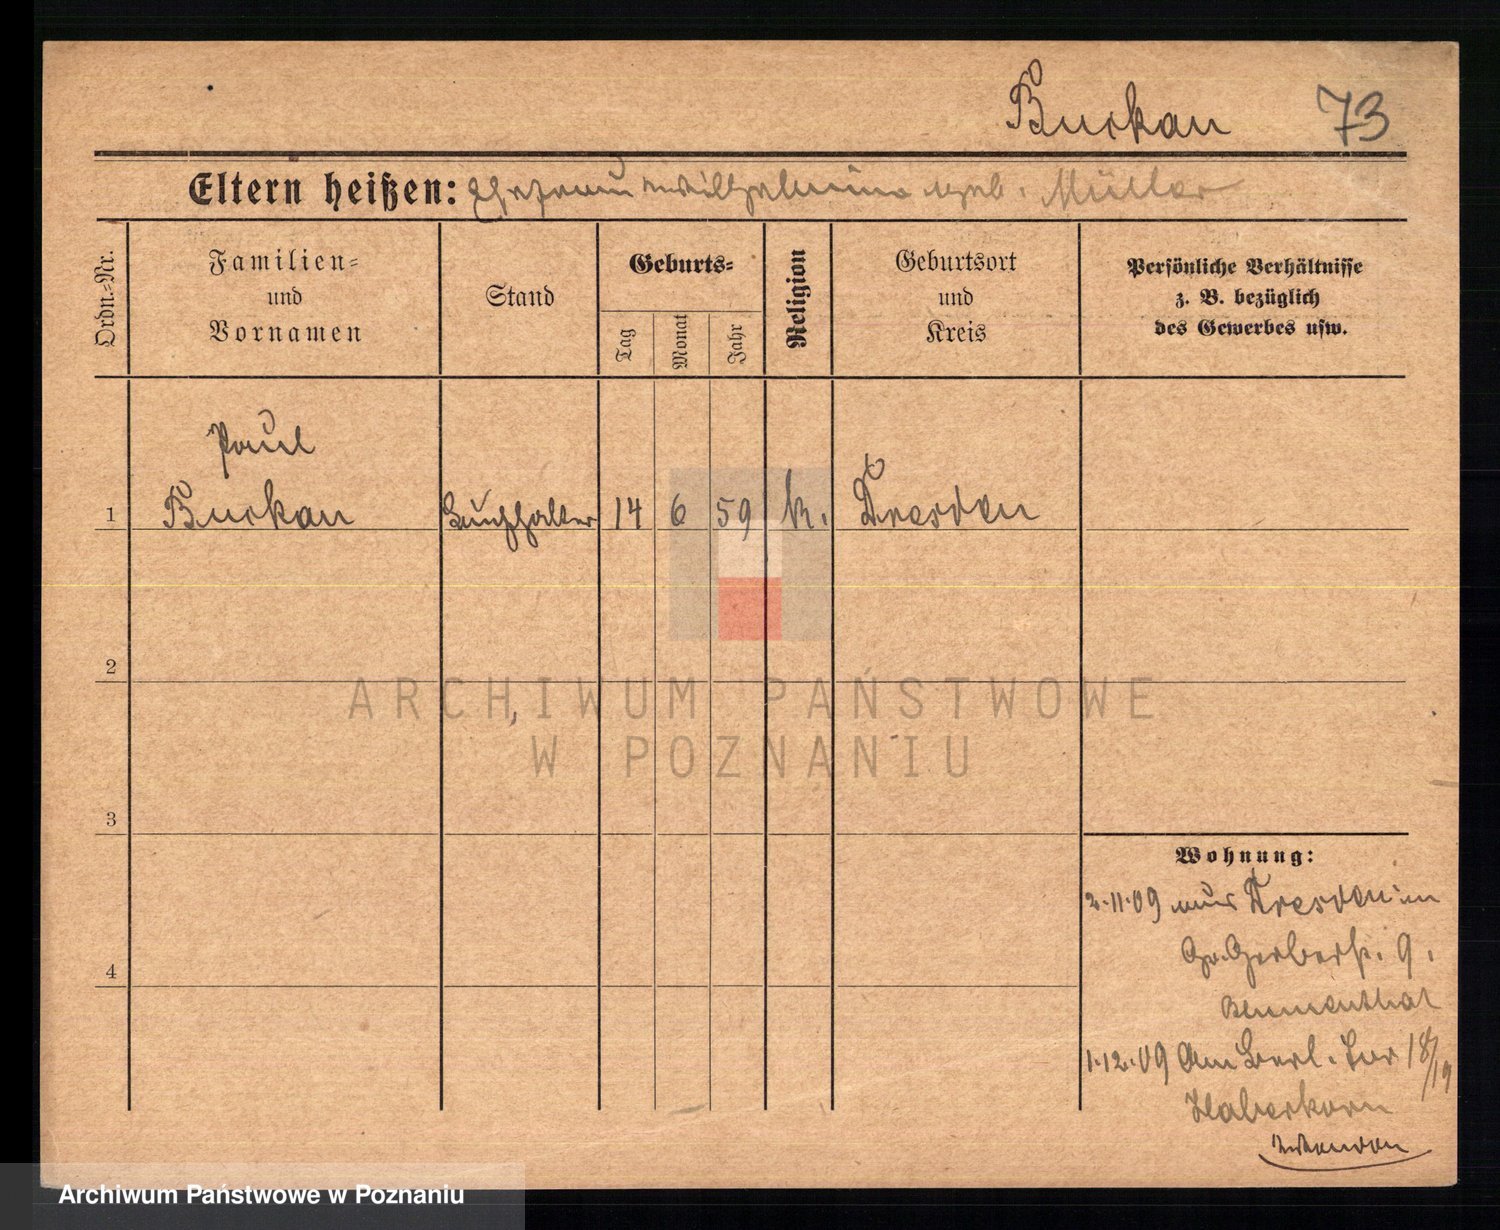 Burkau 73
Eltern heißen: Ehefrau Wilhelmine geb. Müller
Ordn.-Nr.
Familien-
und
Vornamen
Stand
Geburts-
Tag
Monat
Jahr
Religion
Geburtsort
und
Kreis
Persönliche Verhältnisse
z. B. bezüglich
des Gewerbes usw.
Paul
1 Burkau Buchhalter 14 6 59 k. Dresden
2
3
4
Wohnung:
2.11.09 aus Dresden in
Gr. Gerberstr. 9.
Blumenthal
1.12.09 Am Berl. Tor 18/19
Haberkorn
ARCHIWUM PAŃSTWOWE
W POZNANIU
Archiwum Państwowe w Poznaniu